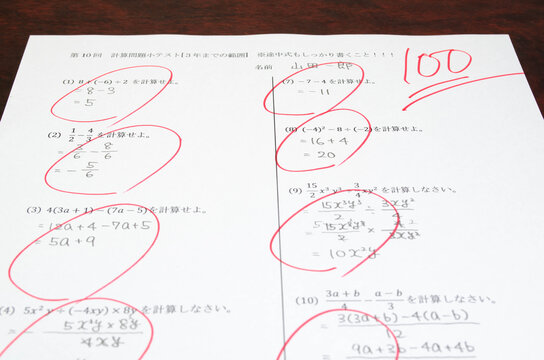 第10回 計算問題小テスト【3年までの範囲】 ※途中式もしっかり書くこと！！！
名前 山田 郎
100
(1) 8+(-6)÷2 を計算せよ。
= 8-3
= 5
(2) 1/2 - 4/3 を計算せよ。
= 3/6 - 8/6
= - 5/6
(3) 4(3a+1)-(7a-5)を計算せよ。
= 12a+4-7a+5
= 5a+9
(4) 5x²y÷(-4xy)×8yを計算しなさい。
= - 5x²y×8y/4xy
(7) -7-4を計算せよ。
= -11
(8) (-4)²-8÷(-2)を計算せよ。
= 16+4
= 20
(9) 15/2 x³y³÷3/4 xy²を計算しなさい。
= 15x³y³/2 ÷ 3xy²/4
= 15x³y³/2 × 4/3xy²
= 10x²y
(10) 3a+b/4 - a-b/3 を計算しなさい。
= 3(3a+b)-4(a-b)/12
= 9a+3b-4a+4b